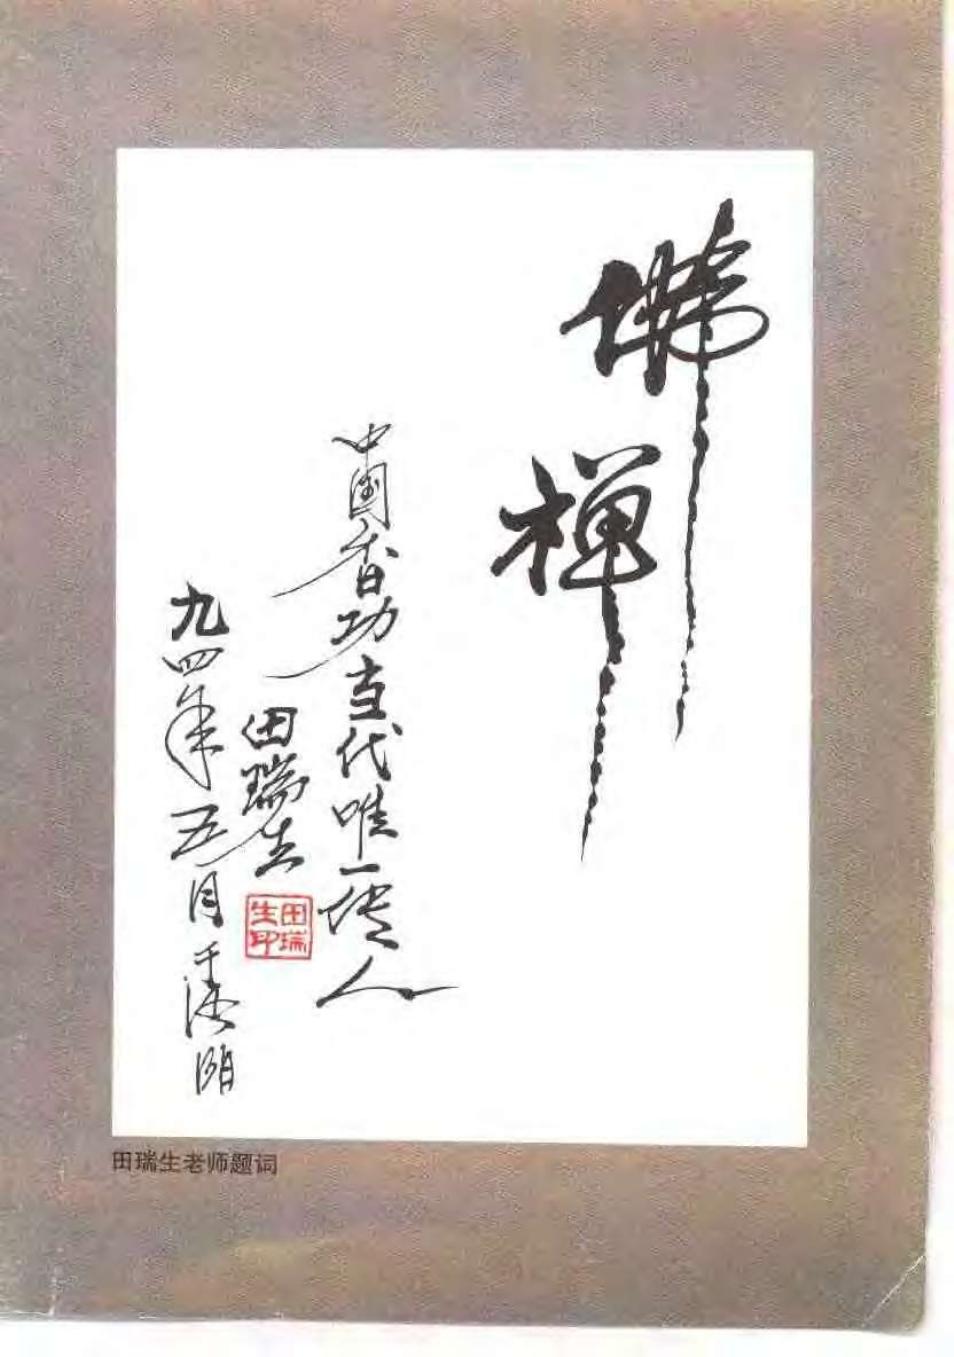 佛
禅
中国香功当代唯一传人
田瑞生
田瑞
生印
九四年五月于洛阳
田瑞生老师题词